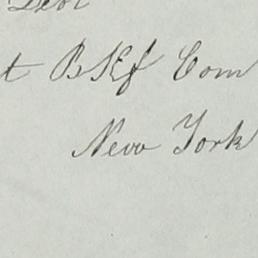 t B Kf Com
New York